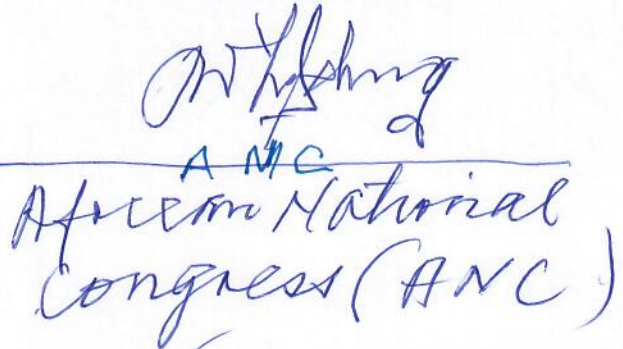 A N C
African National
Congress (ANC)